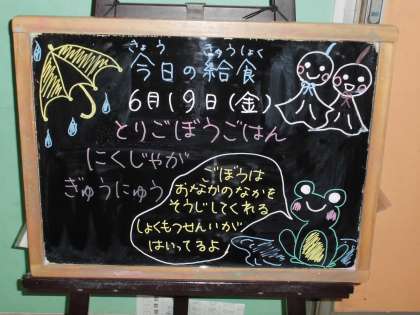 きょう きゅうしょく
今日の給食
6月19日(金)
とりごぼうごはん
にくじゃが
ぎゅうにゅう
ごぼうは
おなかのなかを
そうじしてくれる
しょくもつせんいが
はいってるよ